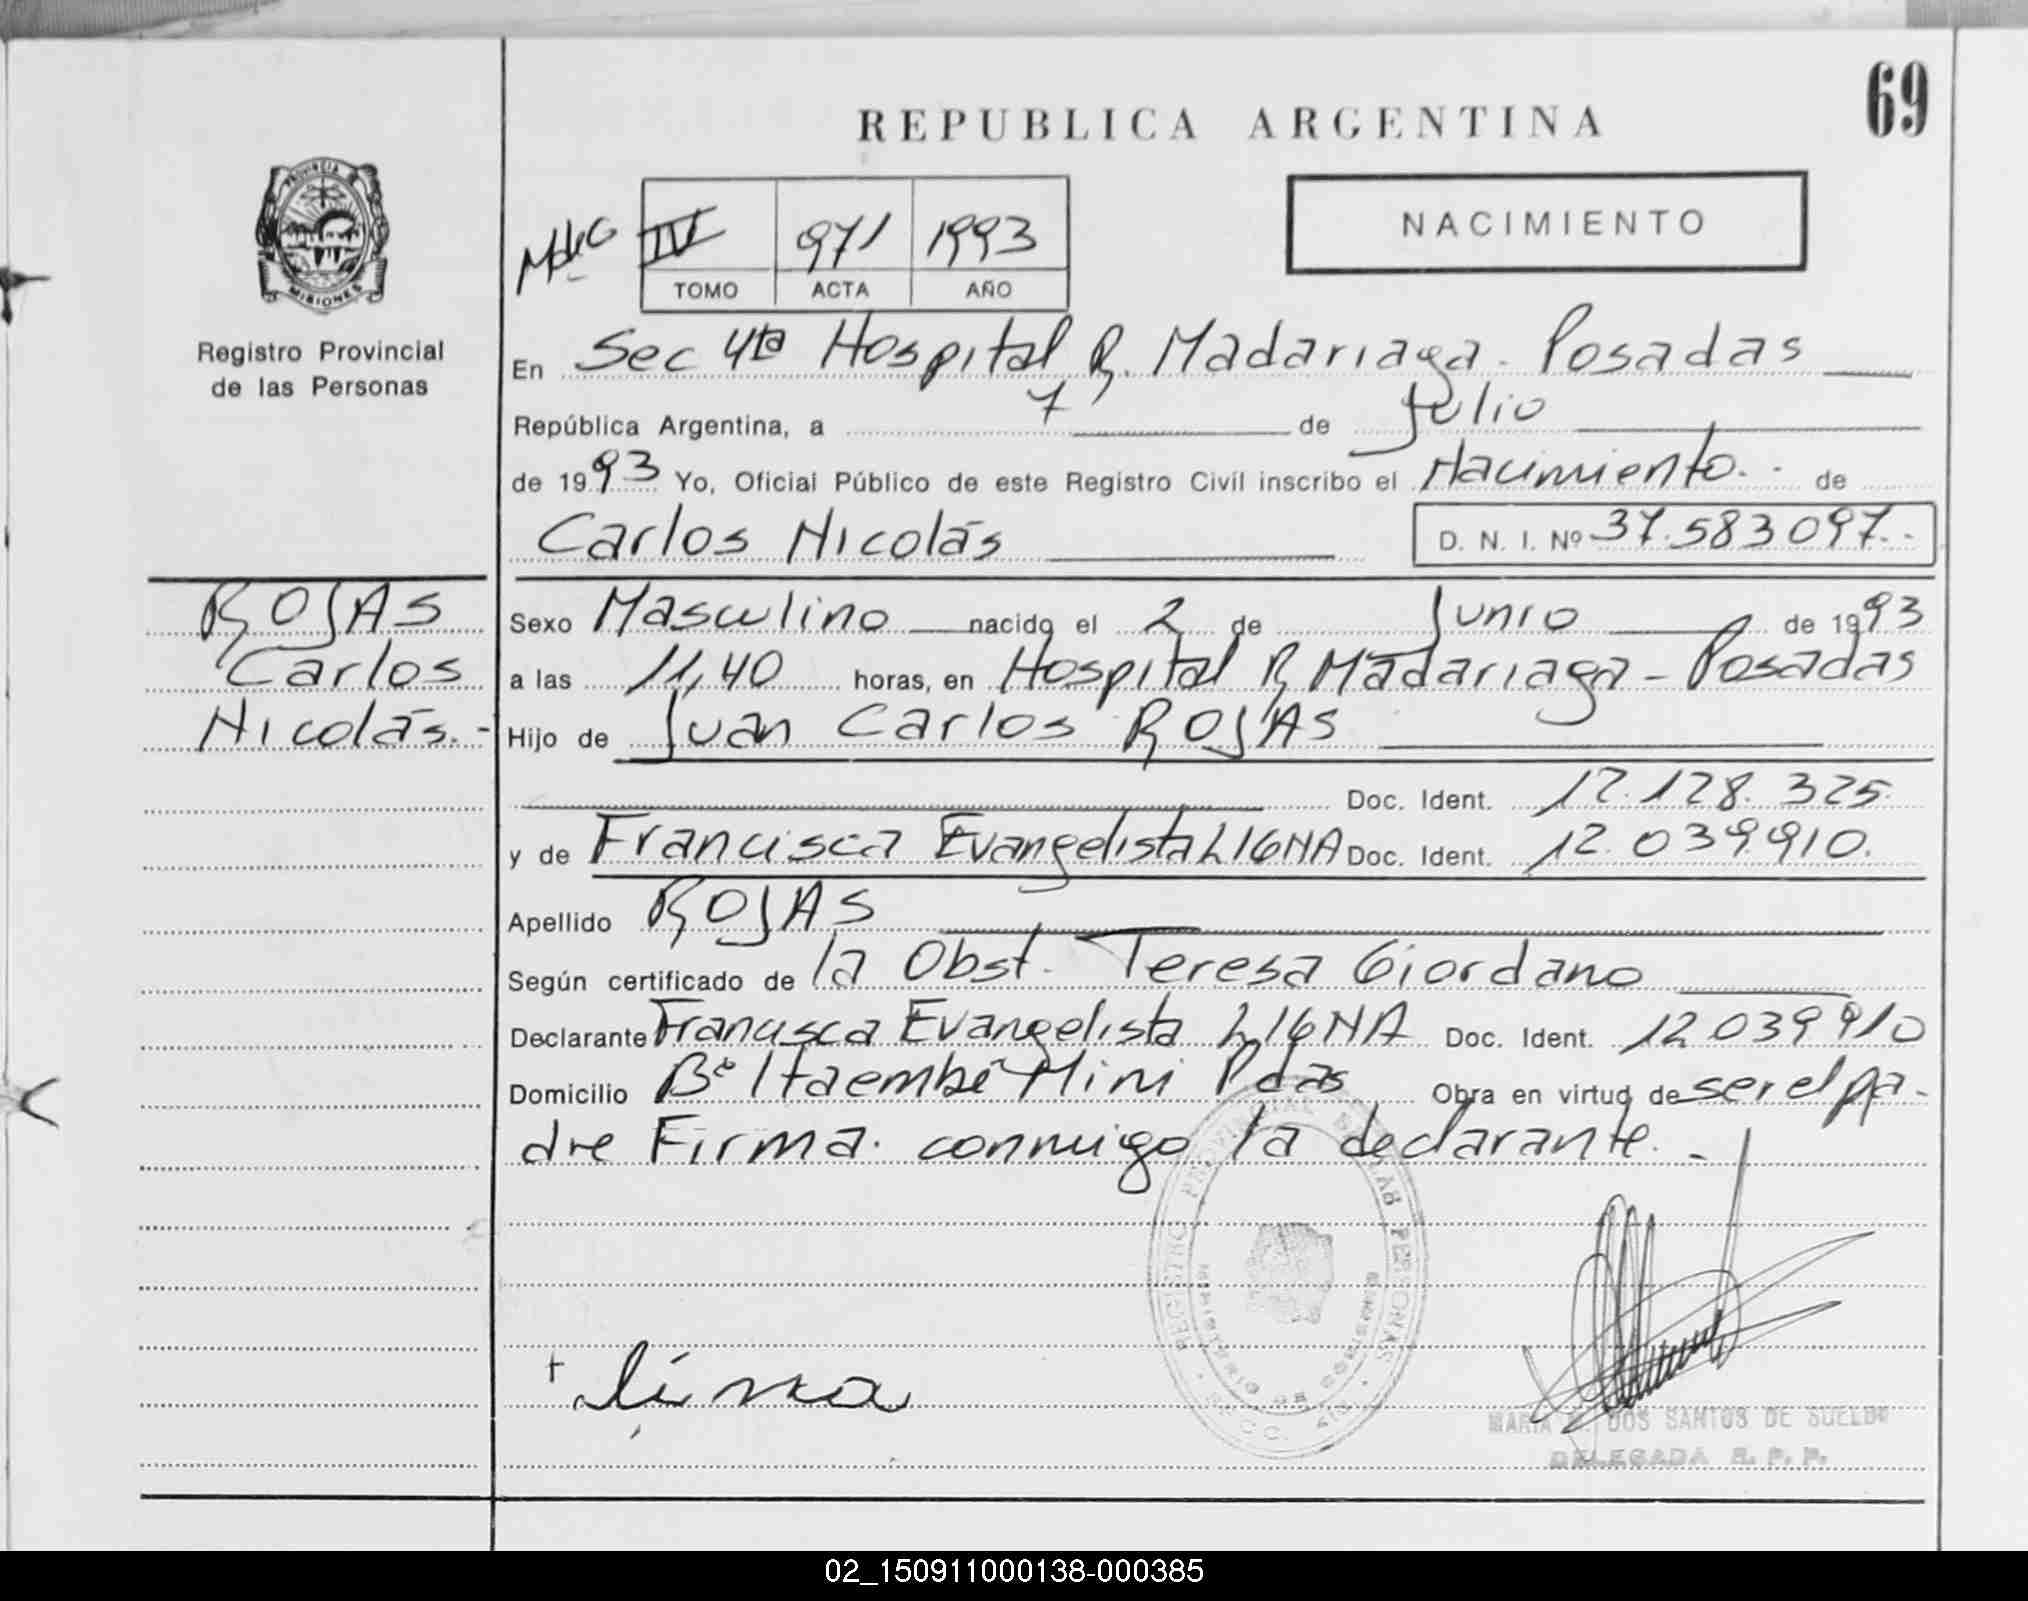 69
REPUBLICA ARGENTINA
PROVINCIA DE
MISIONES
Registro Provincial
de las Personas
IV 971 1993
TOMO ACTA AÑO
NACIMIENTO
En Sec 4ta Hospital R. Madariaga - Posadas
República Argentina, a 7 de Julio
de 1993 Yo, Oficial Público de este Registro Civil inscribo el Nacimiento.- de
Carlos Nicolás D. N. I. Nº 37.583097.-
ROJAS
Carlos
Nicolás.-
Sexo Masculino nacido el 2 de Junio de 1993
a las 11,40 horas, en Hospital R Madariaga - Posadas
Hijo de Juan Carlos ROJAS
Doc. Ident. 12.128.325
y de Francisca Evangelista LIGNA Doc. Ident. 12.039.910.
Apellido ROJAS
Según certificado de la Obst. Teresa Giordano
Declarante Francisca Evangelista LIGNA Doc. Ident. 12039910
Domicilio Bº Itaembé Mini Pdas Obra en virtud de ser el pa-
dre Firma. conmigo la declarante.-
REGISTRO PROVINCIAL DE LAS PERSONAS
MINISTERIO DE GOBIERNO
SECC. 4ta
MARIA DOS SANTOS DE SUELDO
DELEGADA R. P. P.
02_150911000138-000385